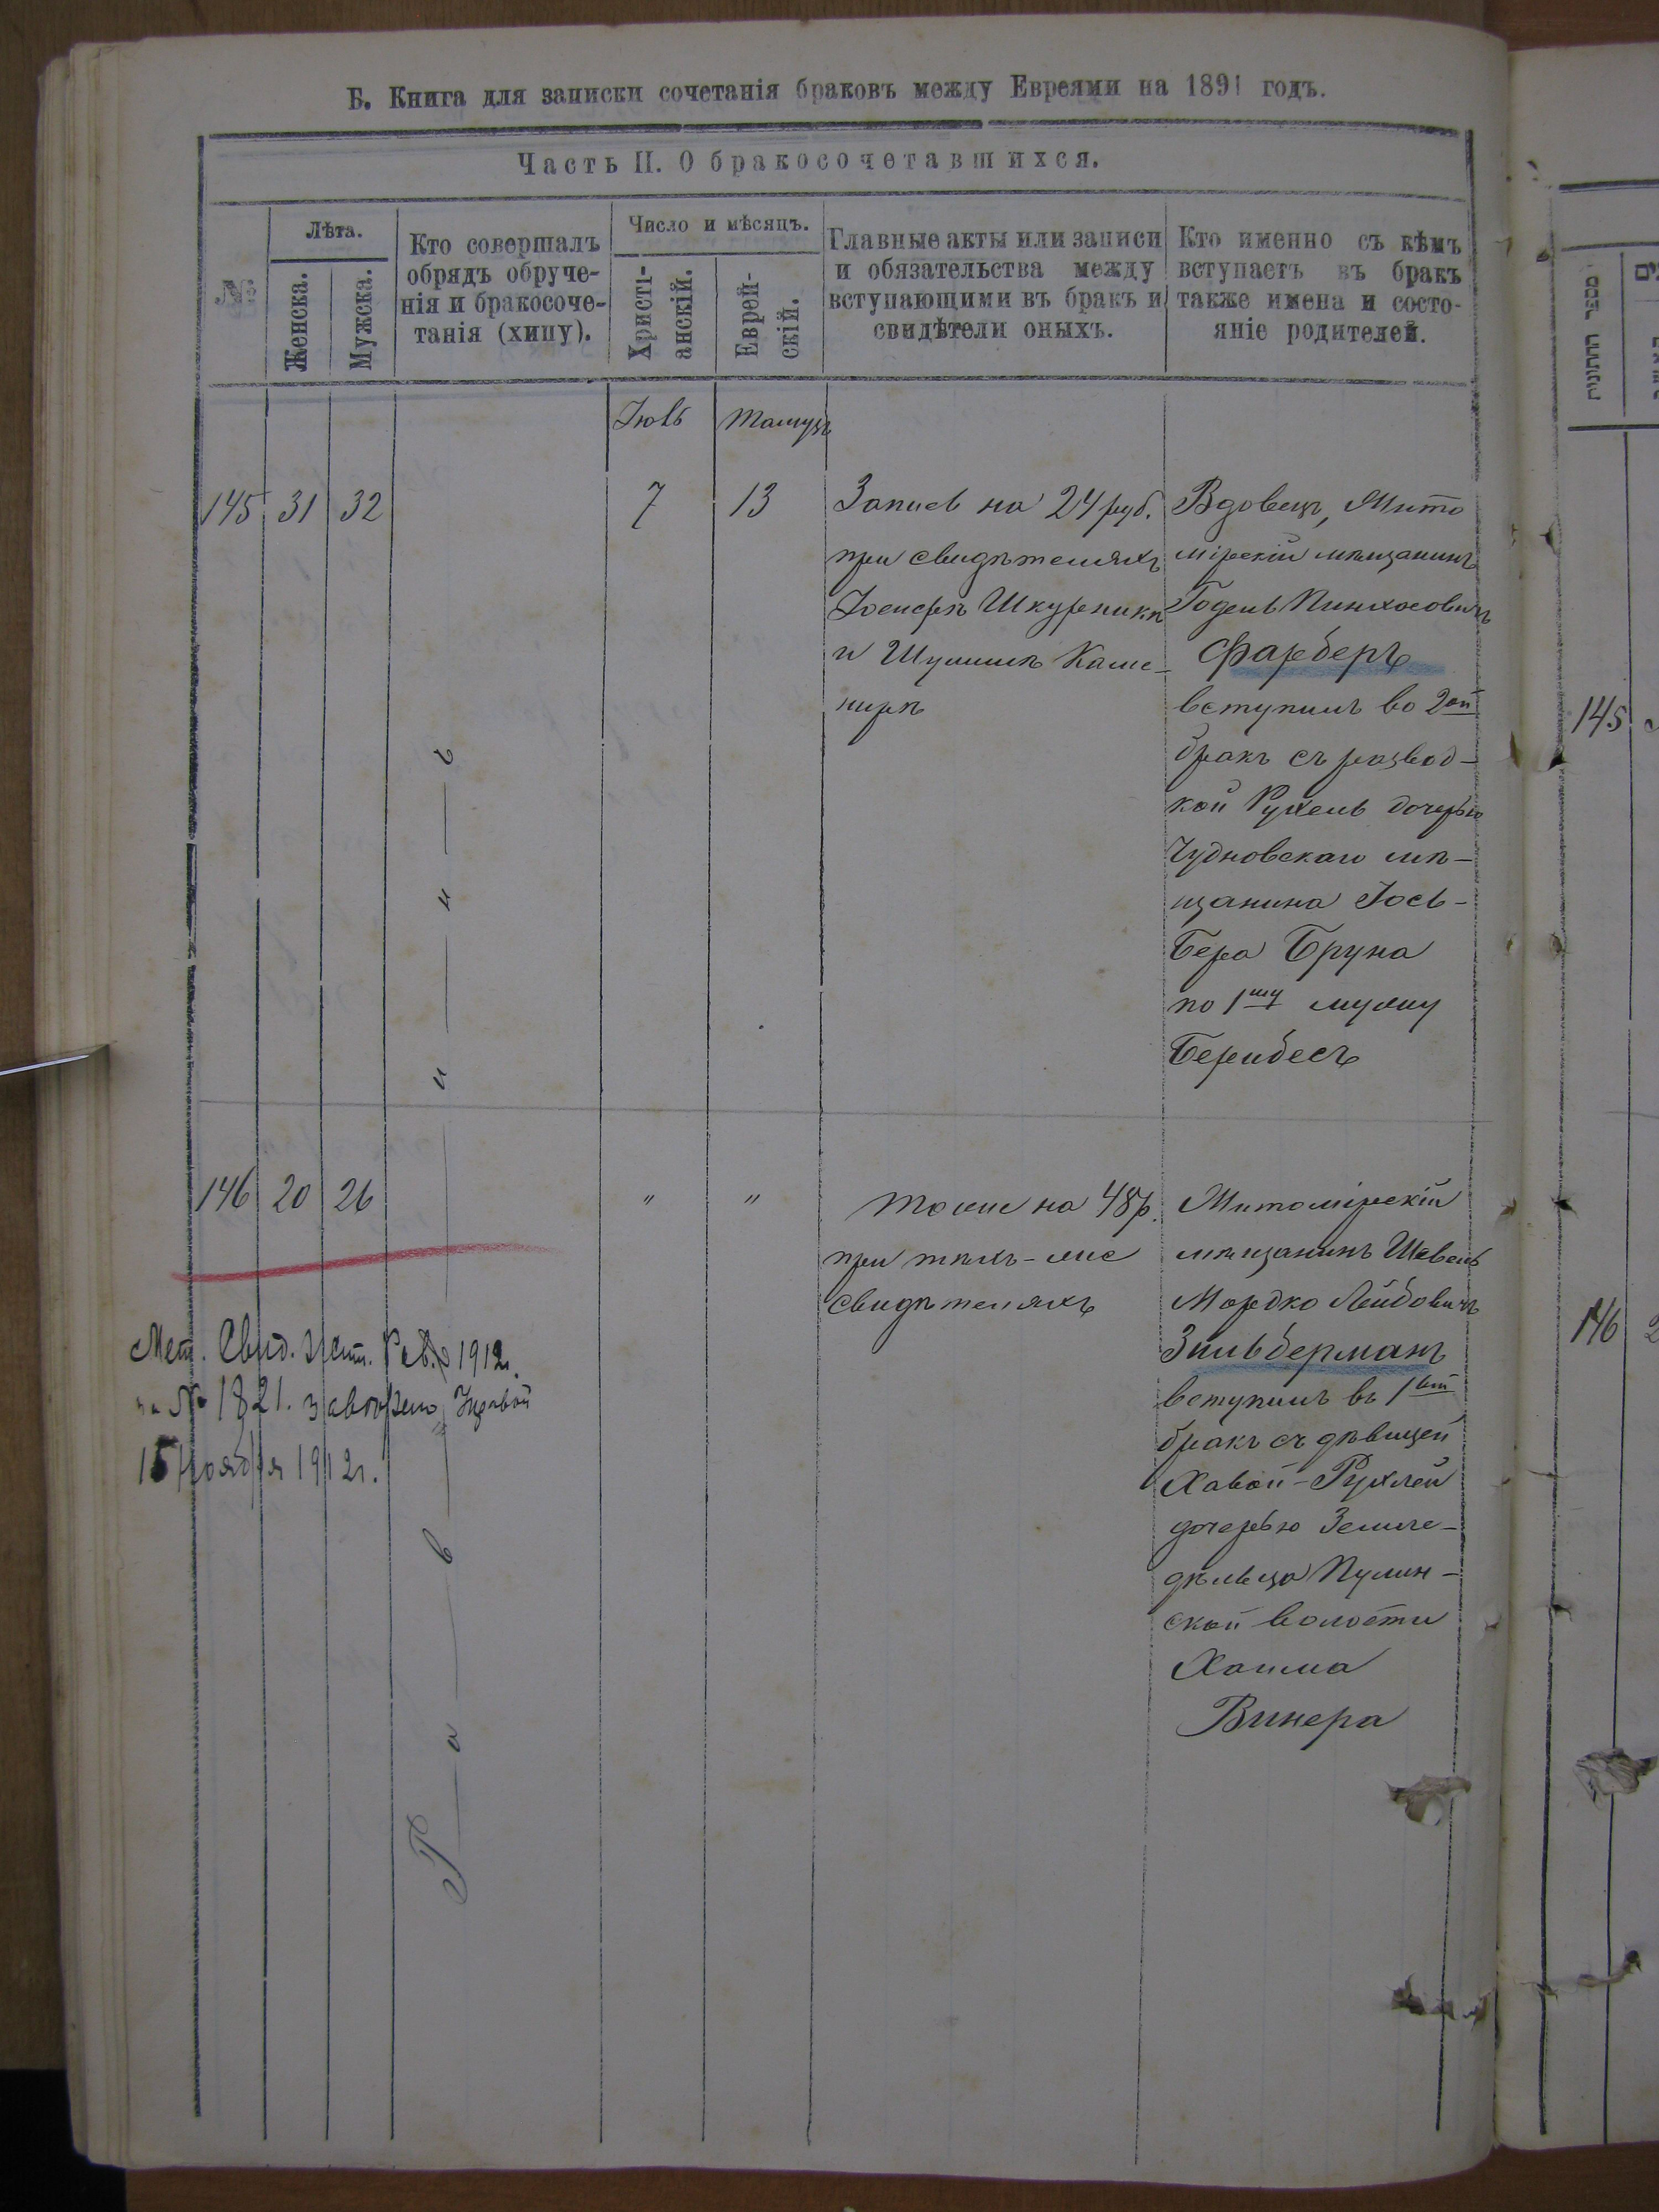 Б. Книга для записки сочетанія браковъ между Евреями на 1891 годъ.
Часть II. О бракосочетавшихся.
№
Лѣта.
Женска.
Мужска.
Кто совершалъ
обрядъ обруче-
нія и бракосоче-
танія (хипу).
Число и мѣсяцъ.
Христі-
анскій.
Еврей-
скій.
Главные акты или записи
и обязательства между
вступающими въ бракъ и
свидѣтели оныхъ.
Кто именно съ кѣмъ
вступаетъ въ бракъ
также имена и состо-
яніе родителей.
Іюль Тамузъ
145 31 32
7 13
Запись на 24 руб.
при свидѣтеляхъ
Іосифѣ Шкурникѣ
и Шулимѣ Каме-
нирѣ
Вдовецъ, Жито
мірскій мѣщанинъ
Годель Пинхосовичъ
Фарберъ
вступилъ во 2ой
бракъ съ развод-
кой Рухель дочерью
Чудновскаго мѣ-
щанина Іось-
Бера Бруна
по 1му мужу
Берибесъ
Раввинъ
146 20 26
" "
Тоже на 48 р.
при тѣхъ-же
свидѣтеляхъ
Житомірскій
мѣщанинъ Шевель
Мордко Лейбовичъ
Зильберманъ
вступилъ въ 1ый
бракъ съ дѣвицей
Хавой-Рухлей
дочерью Земле-
дѣльца Пулин-
ской волости
Хаима
Винера
Мет. Свид. 1912г.
№ 1821.
15 Ноября 1912г.
מספר החתונות
145
146